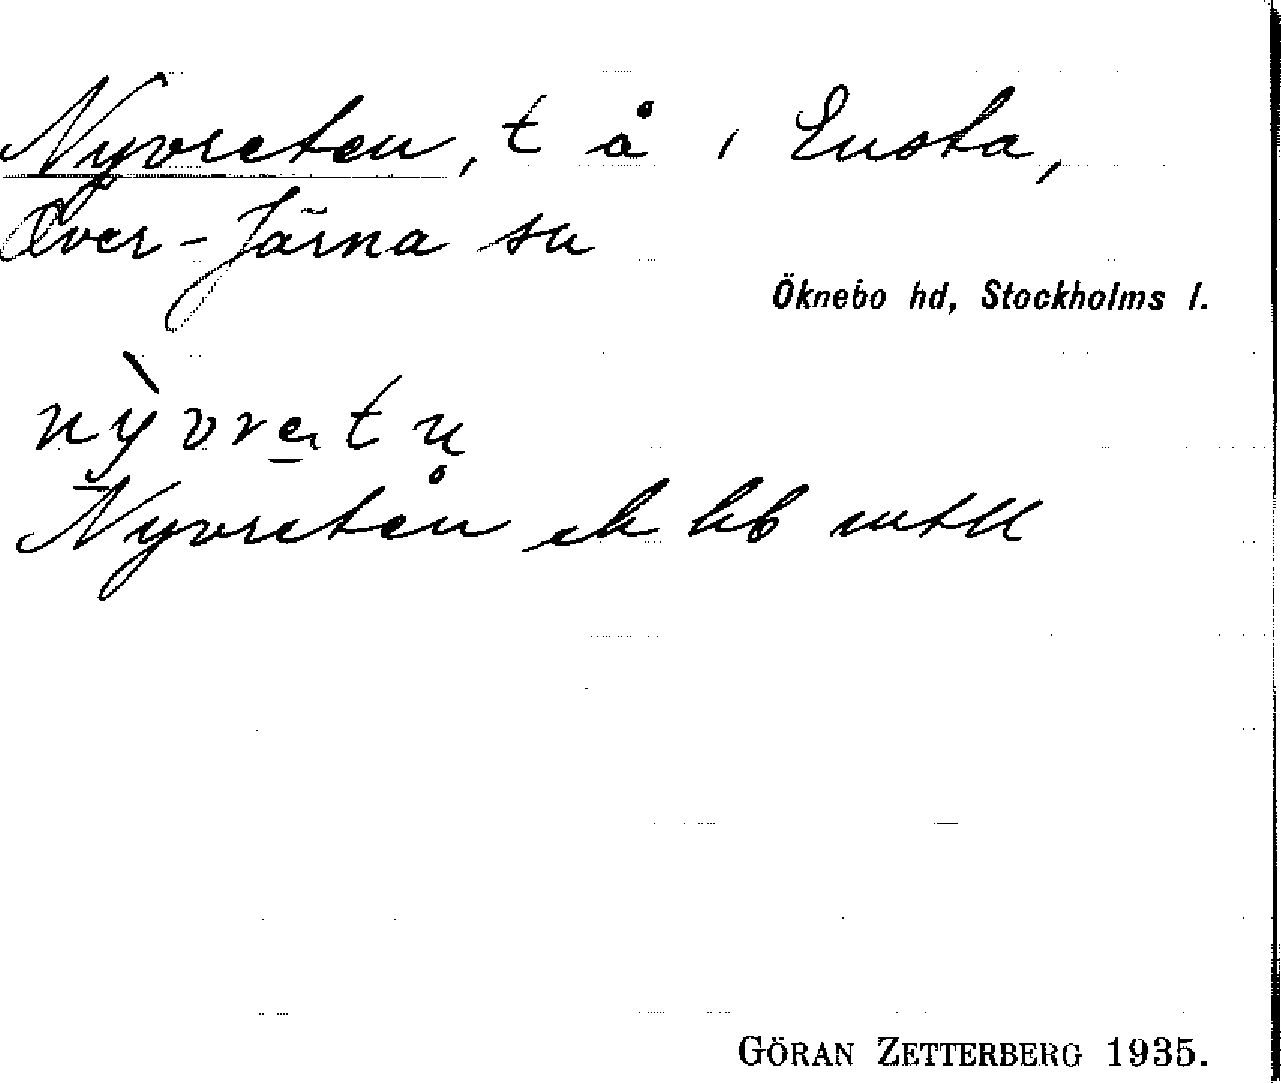 Nyvreten, t å i Ensta,
Över-Järna sn
Öknebo hd, Stockholms l.
nỳvretn̥
Nyvreten ek hb mtll
GÖRAN ZETTERBERG 1935.